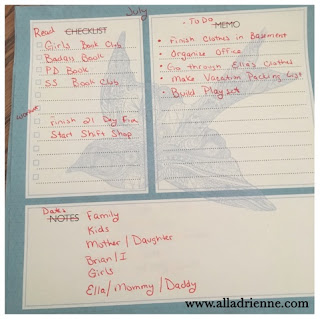 July
Read CHECKLIST
Girls Book Club
Badass Book
PD Book
SS Book Club
workout
Finish 21 Day Fix
Start Shift Shop
To Do MEMO
• Finish Clothes in Basement
• Organize Office
• Go through Ella's Clothes
• Make Vacation Packing List
• Build Playset
Dates NOTES
Family
Kids
Mother/Daughter
Brian/I
Girls
Ella/Mommy/Daddy
www.alladrienne.com